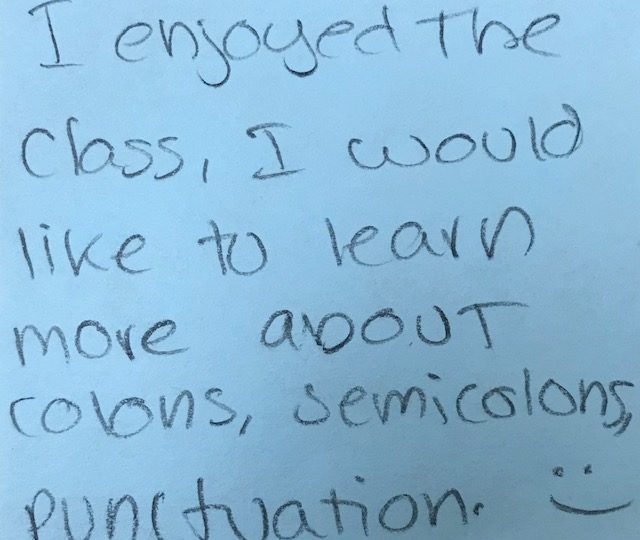 I enjoyed the
class, I would
like to learn
more about
colons, semicolons,
punctuation. :)